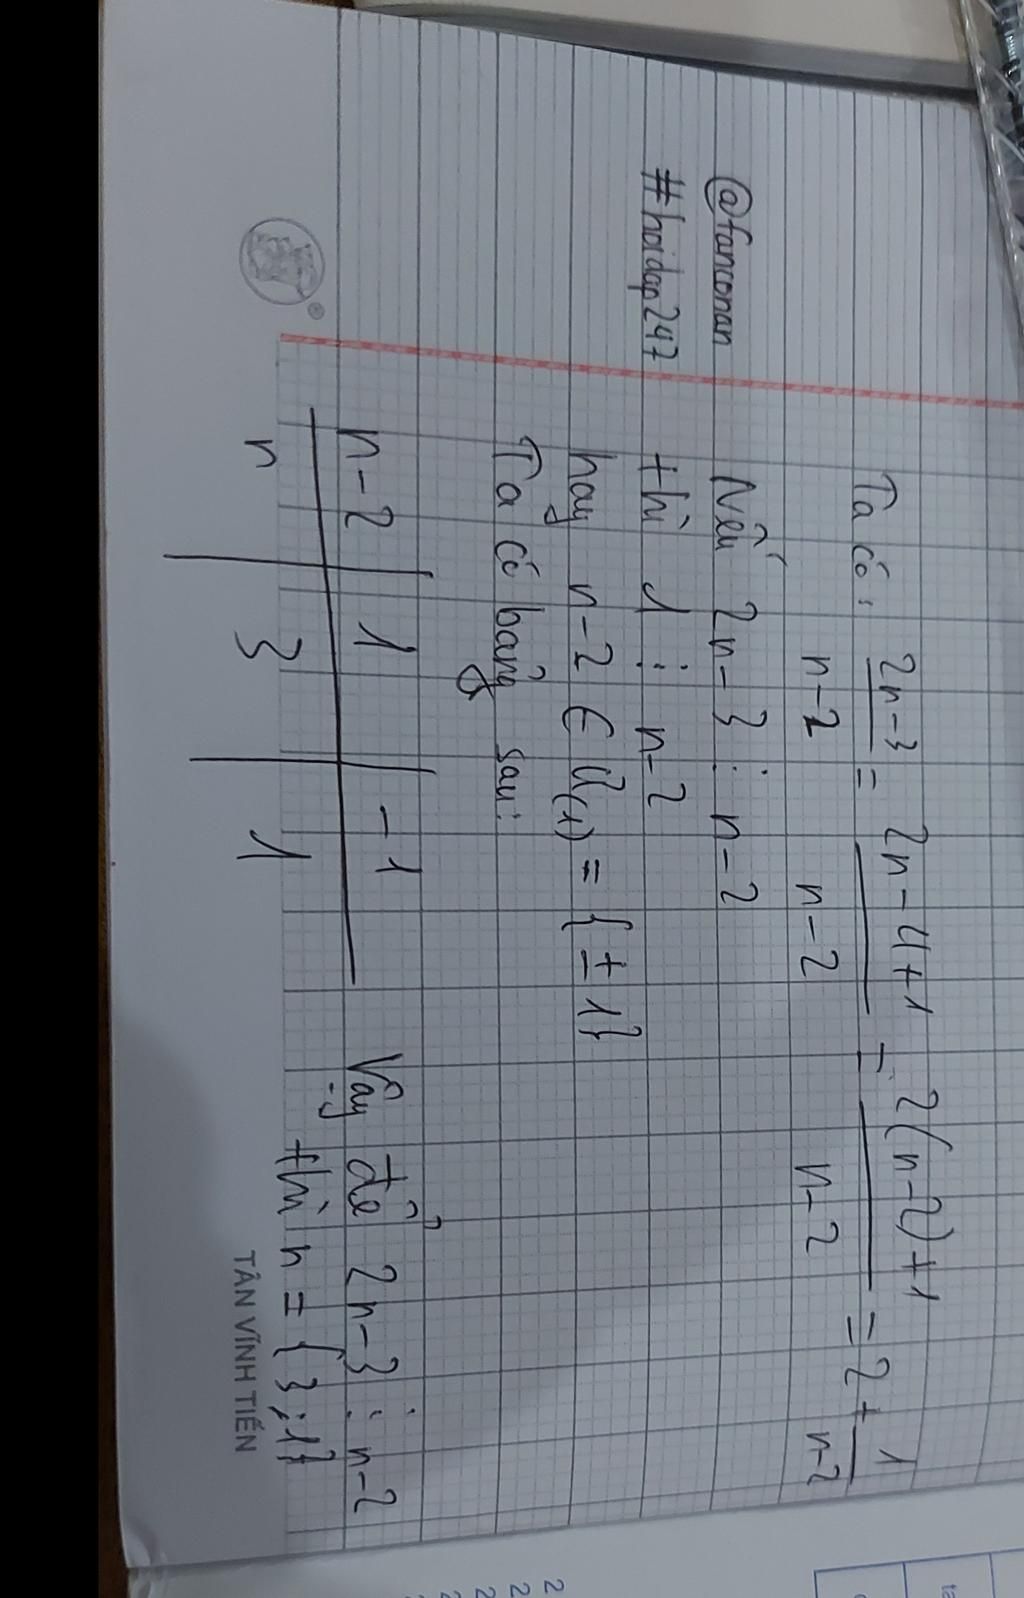 Ta có: 2n-3/n-2 = 2n-4+1/n-2 = 2(n-2)+1/n-2 = 2 + 1/n-2
@fanconan Nếu 2n-3 ⋮ n-2
#hoidap247 thì 1 ⋮ n-2
hay n-2 ∈ Ư(1) = {±1}
Ta có bảng sau:
n-2 | 1 | -1
n | 3 | 1
Vậy để 2n-3 ⋮ n-2
thì n = {3;1}
TÂN VĨNH TIẾN
®
2
2
2